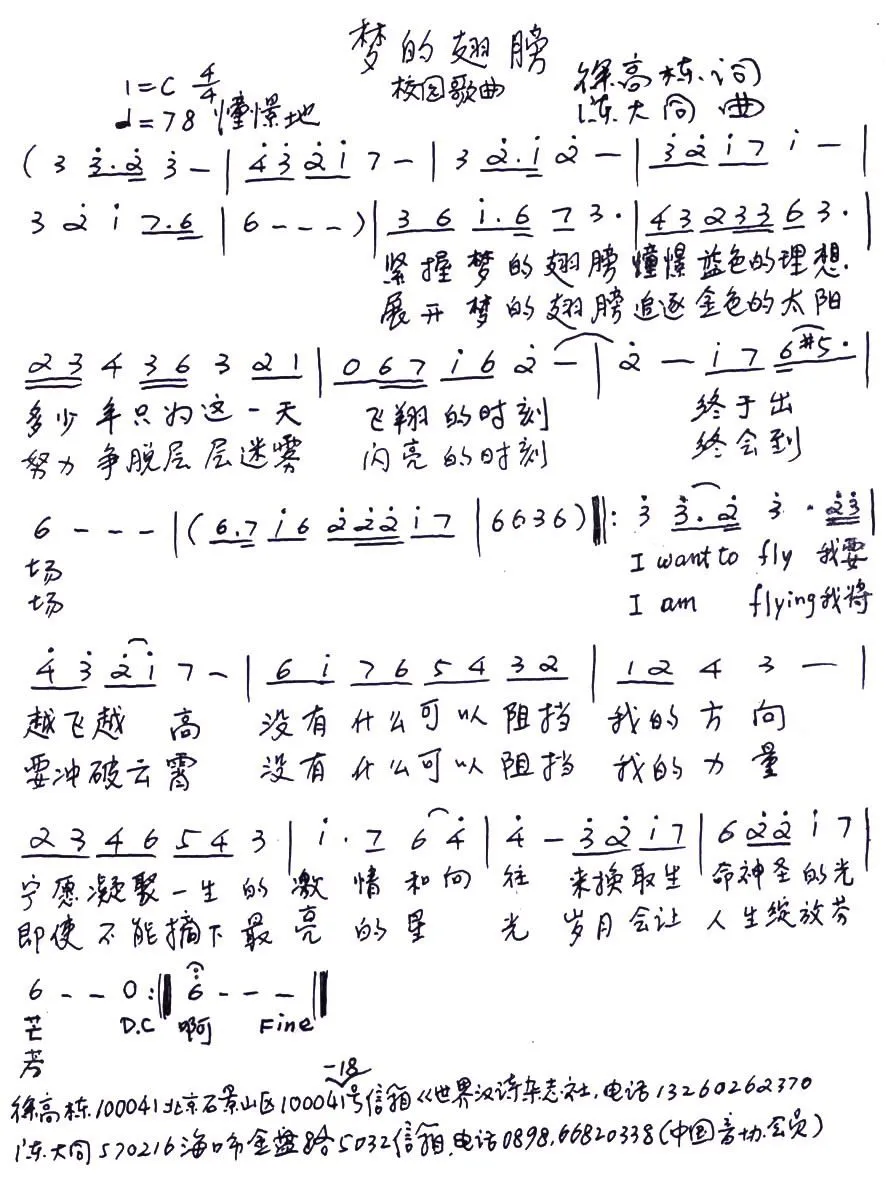 梦的翅膀
校园歌曲
1=C 4/4
♩=78 憧憬地
徐高栋 词
陈大同 曲
( 3 3̇.2̇ 3̇ - | 4̇3̇ 2̇1̇ 7 - | 3 2̇.1̇ 2̇ - | 3̇2̇ 1̇7 1̇ - |
3 2̇ 1̇ 7.6 | 6 - - - ) | 3 6 1̇.6 7 3. | 43 233 6 3. |
紧握梦的翅膀 憧憬蓝色的理想.
展开梦的翅膀 追逐金色的太阳
23 4 36 3 21 | 0 67 1̇6 2̇ - | 2̇ - 1̇7 6#5. |
多少年只为这一天 飞翔的时刻 终于出
努力争脱层层迷雾 闪亮的时刻 终会到
6 - - - | (6.7 1̇6 2̇2̇2̇ 1̇7 | 6636) ‖: 3̇ 3̇.2̇ 3̇ . 2̇3̇ |
场 I want to fly 我要
场 I am flying 我将
4̇3̇ 2̇1̇ 7 - | 61̇ 76 54 32 | 12 4 3 - |
越飞越高 没有什么可以阻挡 我的方向
要冲破云霄 没有什么可以阻挡 我的力量
23 46 54 3 | 1̇. 7 6 4̇ | 4̇ - 3̇2̇ 1̇7 | 6 2̇2̇ 1̇ 7 |
宁愿凝聚一生的激情和向往 来换取生命神圣的光
即使不能摘下最亮的星光 岁月会让人生绽放芬
6 - - 0 :‖ 6̇ - - - ‖
芒 D.C 啊 Fine
芳
-18
徐高栋.100041北京石景山区100041号信箱《世界汉诗杂志社,电话13260262370
陈大同570216海口市金盘路5032信箱.电话0898.66820338(中国音协会员)